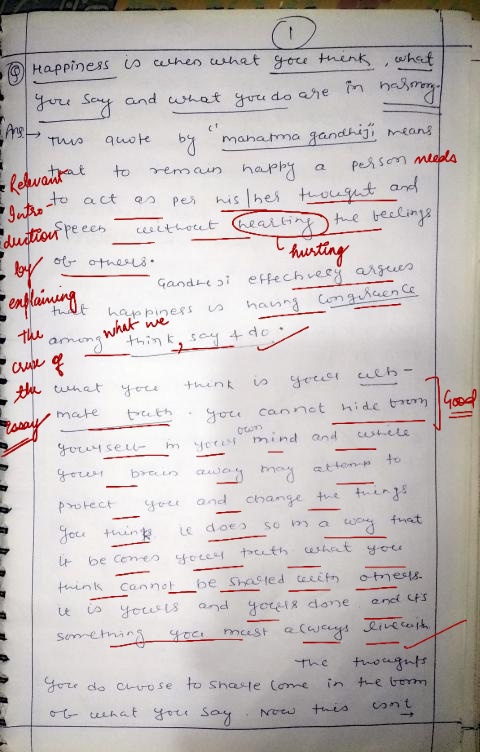 1
Q Happiness is when what you think, what
you say and what you do are in harmony.
Ans. → This quote by "mahatma gandhiji" means
that to remain happy a person needs
to act as per his/her thought and
Speech without hearting the feelings
hurting
of others.
Relevant
Intro
duction
by
explaining
the
crux of
the
essay
Gandhiji effectively argues
that happiness is having congruence
among what we think, say + do.
what you think is your ulti-
mate truth. you cannot hide from
Good
yourself in your own mind and while
your brain away may attempt to
protect you and change the things
you think it does so in a way that
it becomes your truth what you
think cannot be shared with others.
it is yours and yours alone and its
something you must always live with
The thoughts
you do choose to share come in the form
of what you say. Now this isnt